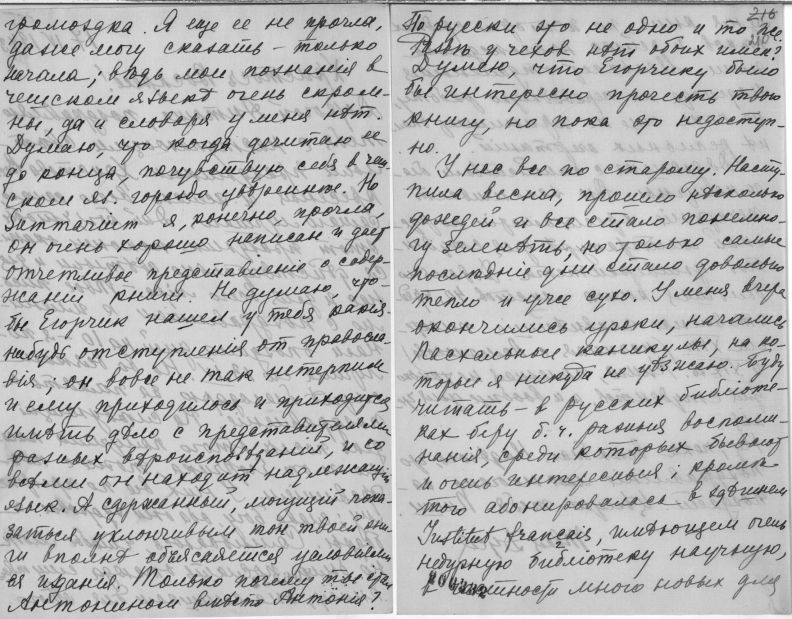 громоздка. Я еще ее не прочла,
даже могу сказать – только
начала; ведь мои познанія в
чешском языкѣ очень скром-
ны, да и словаря у меня нѣт.
Думаю, что когда дочитаю ее
до конца, почувствую себя в чеш
ском яз. гораздо увѣреннѣе. Но
я, конечно, прочла,
он очень хорошо написан и дает
отчетливое представленіе о содер-
жаніи книги. Не думаю, что-
бы Егорчик нашел у тебя какія-
нибудь отступленія от правосла-
вія; он вовсе не так нетерпим
и ему приходилось и приходится
имѣть дѣло с представителями
разных вѣроисповѣданій, и со
всѣми он находит надлежащій
язык. А сдержанный, могущій пока-
заться уклончивым тон твоей кни-
ги вполнѣ объясняется условіями
ея изданія. Только почему ты
Антонином вмѣсто Антонія?
216
По русски это не одно и то же.
Развѣ у чехов нѣт обоих имен?
Думаю, что Егорчику было
бы интересно прочесть твою
книгу, но пока это недоступ-
но.
У нас все по старому. Насту-
пила весна, прошло нѣсколько
дождей и все стало понемно-
гу зеленѣть, но только самые
послѣдніе дни стало довольно
тепло и уже сухо. У меня вчера
окончились уроки, начались
Пасхальные каникулы, на ко-
торые я никуда не уѣзжаю. Буду
читать – в русских библіоте-
ках беру б. ч. разныя воспоми-
нанія, среди которых бывают
и очень интересныя; кромѣ
того абонировалась в здѣшнем
Institut français, имѣющем очень
недурную библіотеку научную,
в частности много новых для